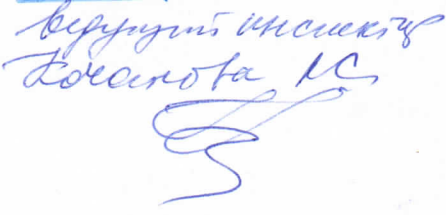 ведущий инспектор
Кочанова АС